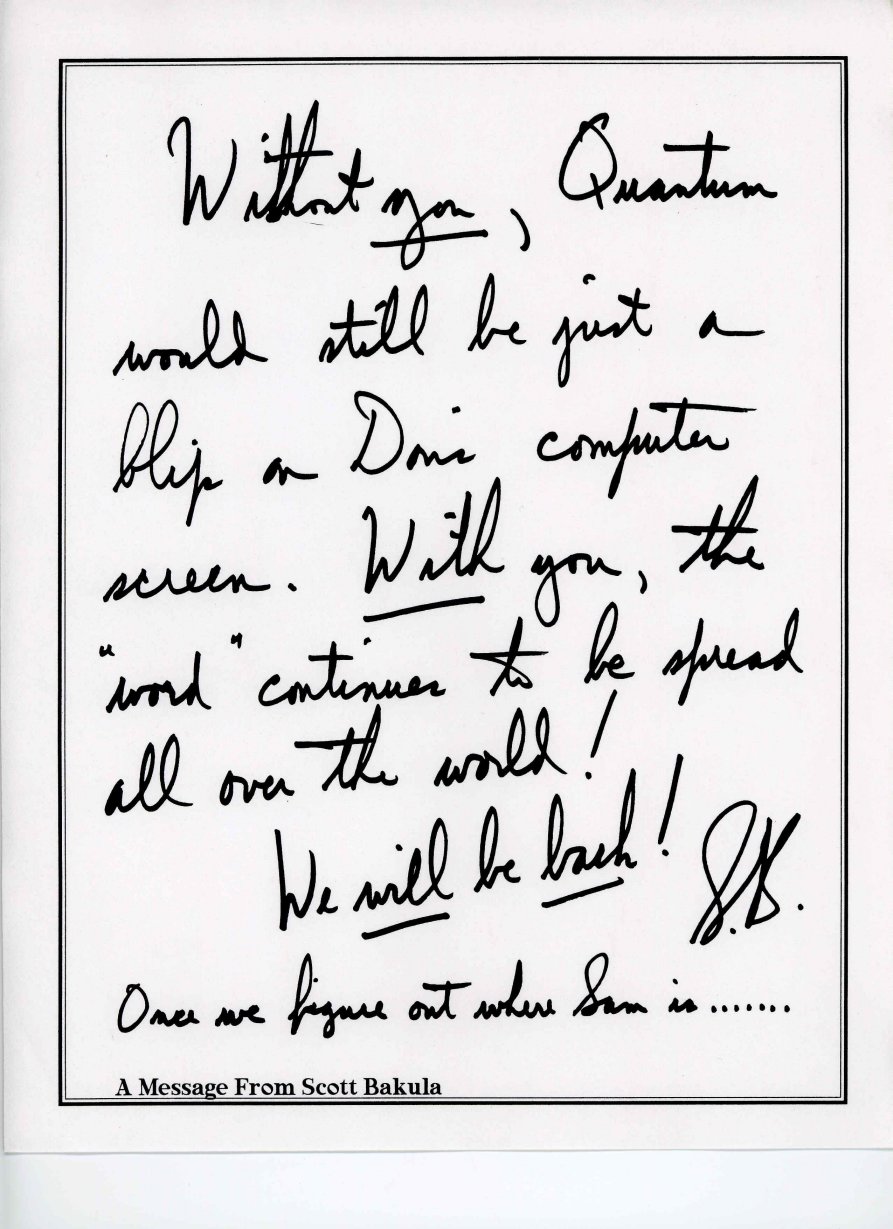 Without you, Quantum
would still be just a
blip on Don's computer
screen. With you, the
"word" continues to be spread
all over the world!
We will be back! S.B.
Once we figure out where Sam is.......
A Message From Scott Bakula